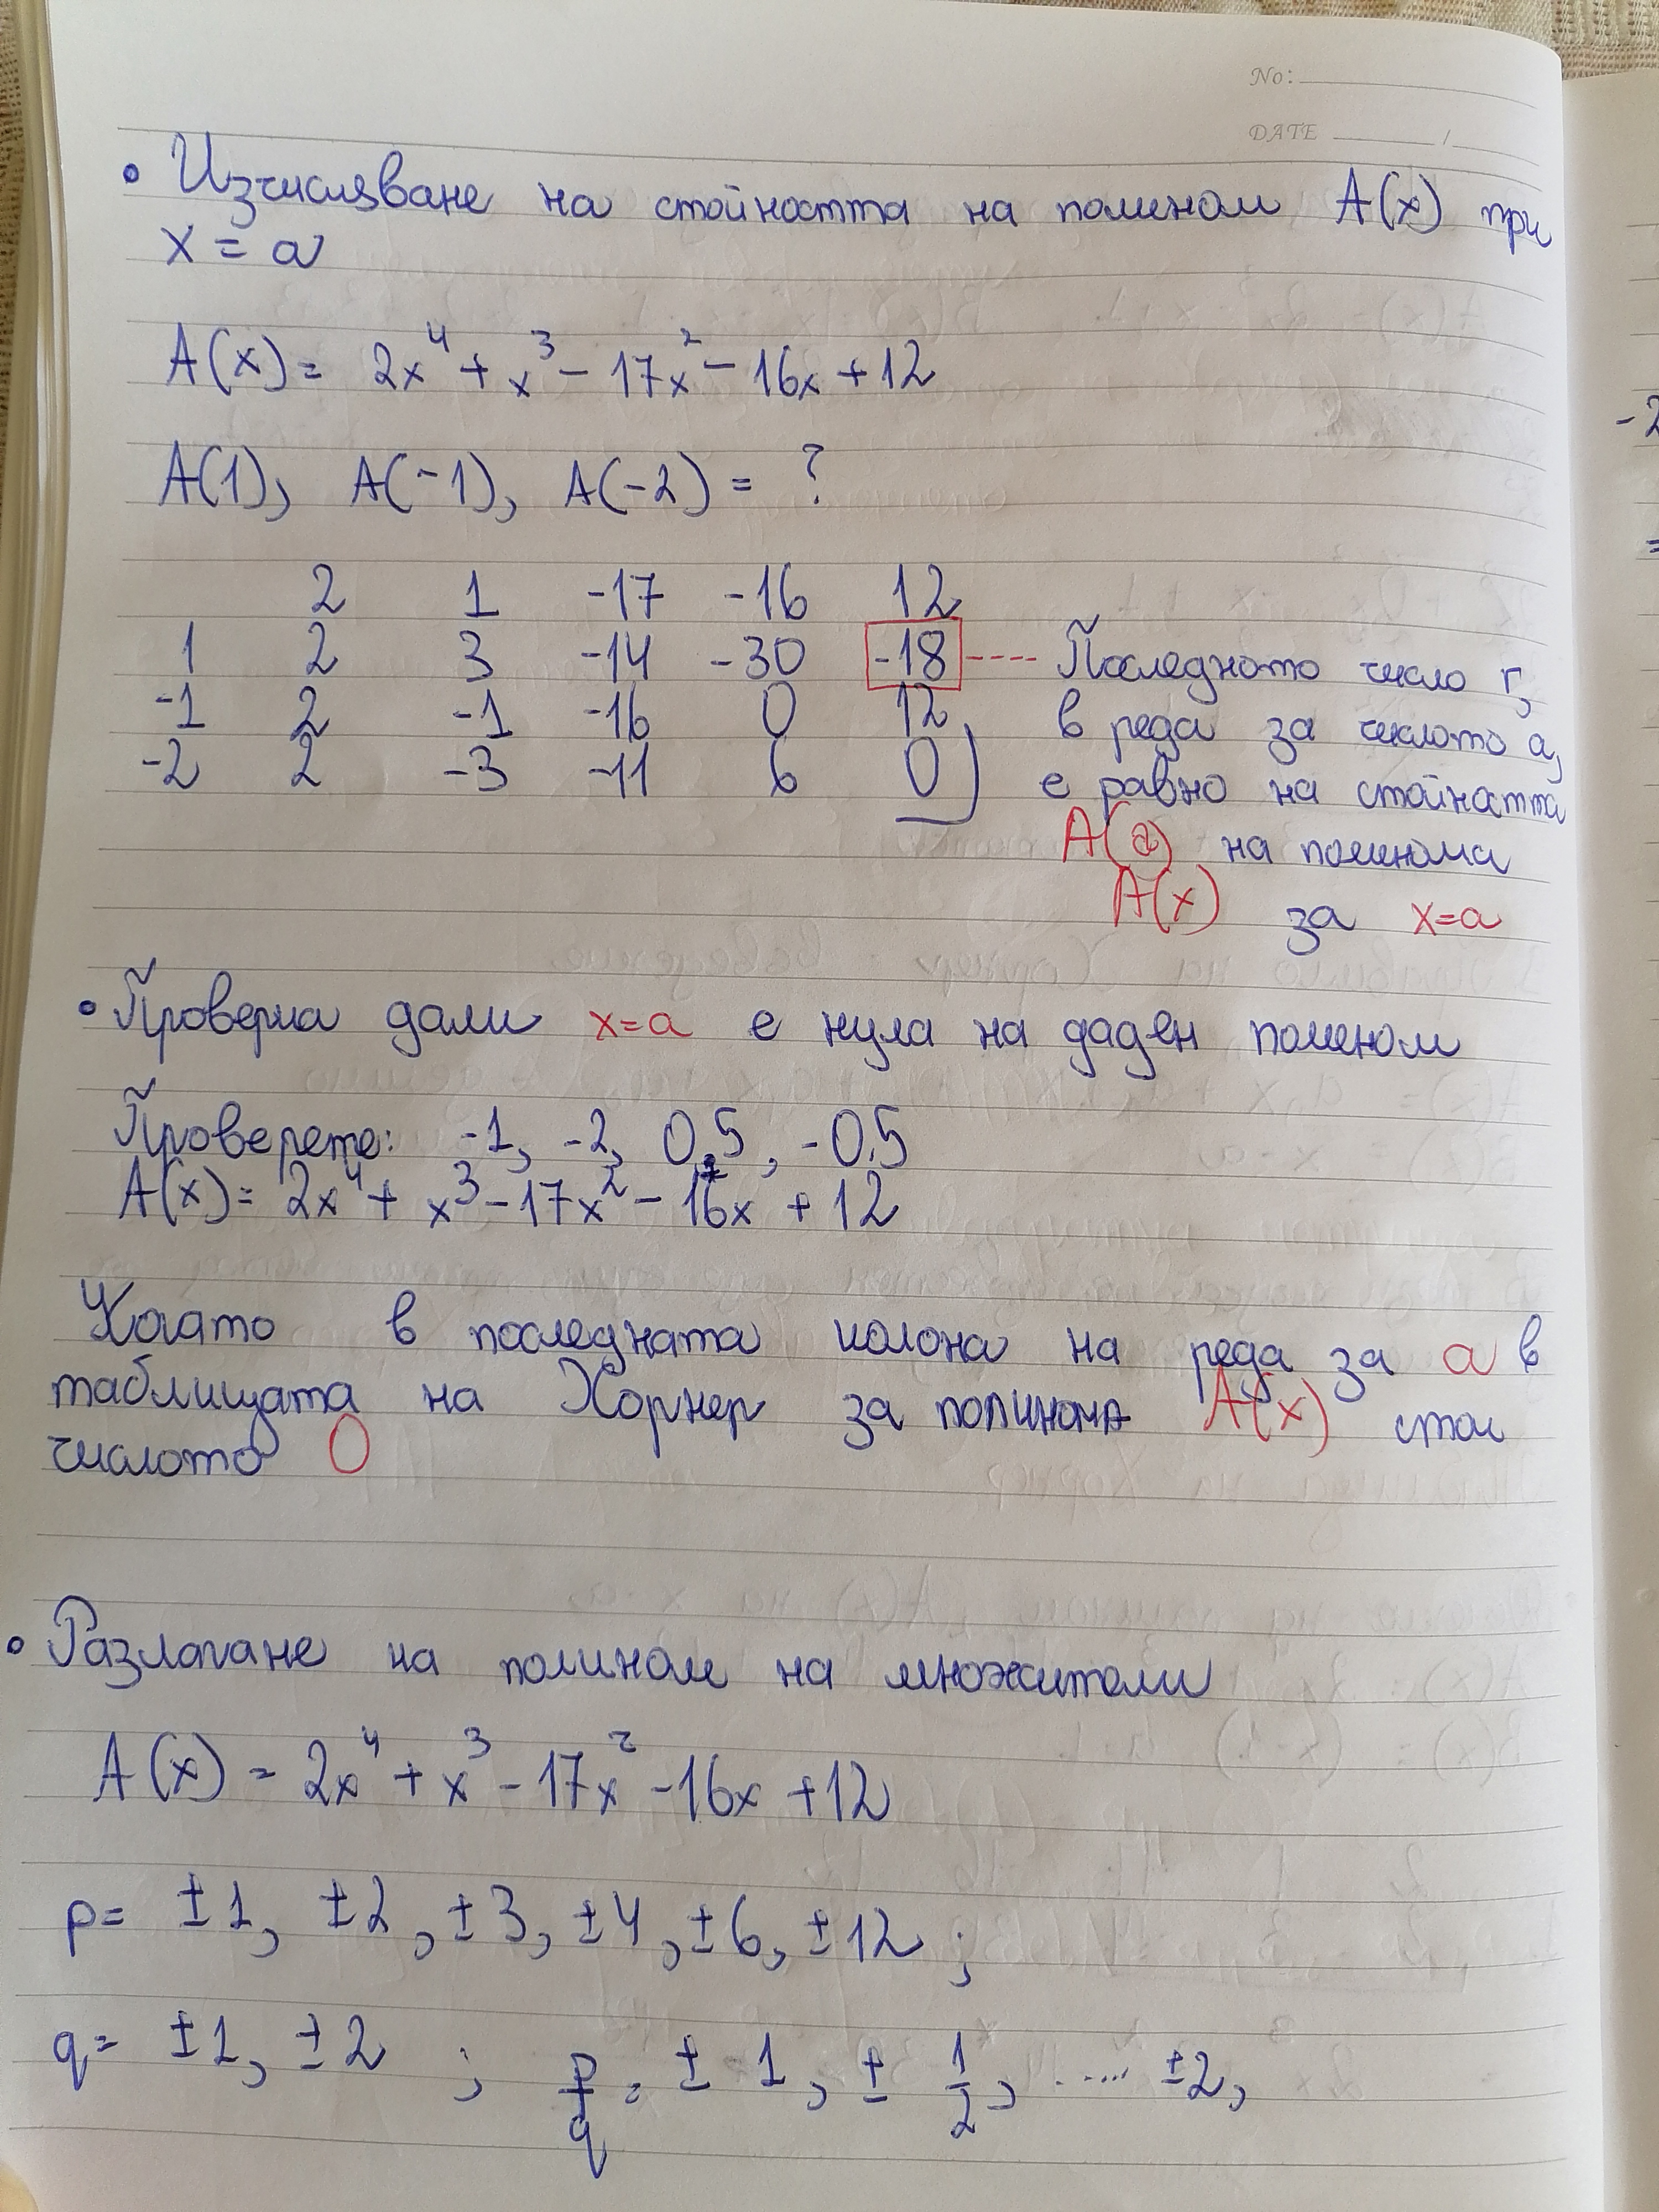 No:
DATE /
• Изчисляване на стойността на полином A(x) при
x = a
A(x) = 2x⁴ + x³ - 17x² - 16x + 12
A(1), A(-1), A(-2) = ?
2 1 -17 -16 12
1 2 3 -14 -30 -18 ---- Последното число r,
-1 2 -1 -16 0 12 в реда за числото a,
-2 2 -3 -11 6 0 е равно на стойността
A(a) на полинома
A(x) за x=a
• Проверка дали x=a е нула на даден полином
Проверете: -1, -2, 0,5, -0.5
A(x) = 2x⁴ + x³ - 17x² - 16x + 12
Когато в последната колона на реда за a в
таблицата на Хорнер за полинома A(x) стои
числото 0
• Разлагане на полином на множители
A(x) = 2x⁴ + x³ - 17x² - 16x + 12
p = ±1, ±2, ±3, ±4, ±6, ±12 ;
q = ±1, ±2 ; p/q = ±1, ±1/2, ..... ±2,
-2
=